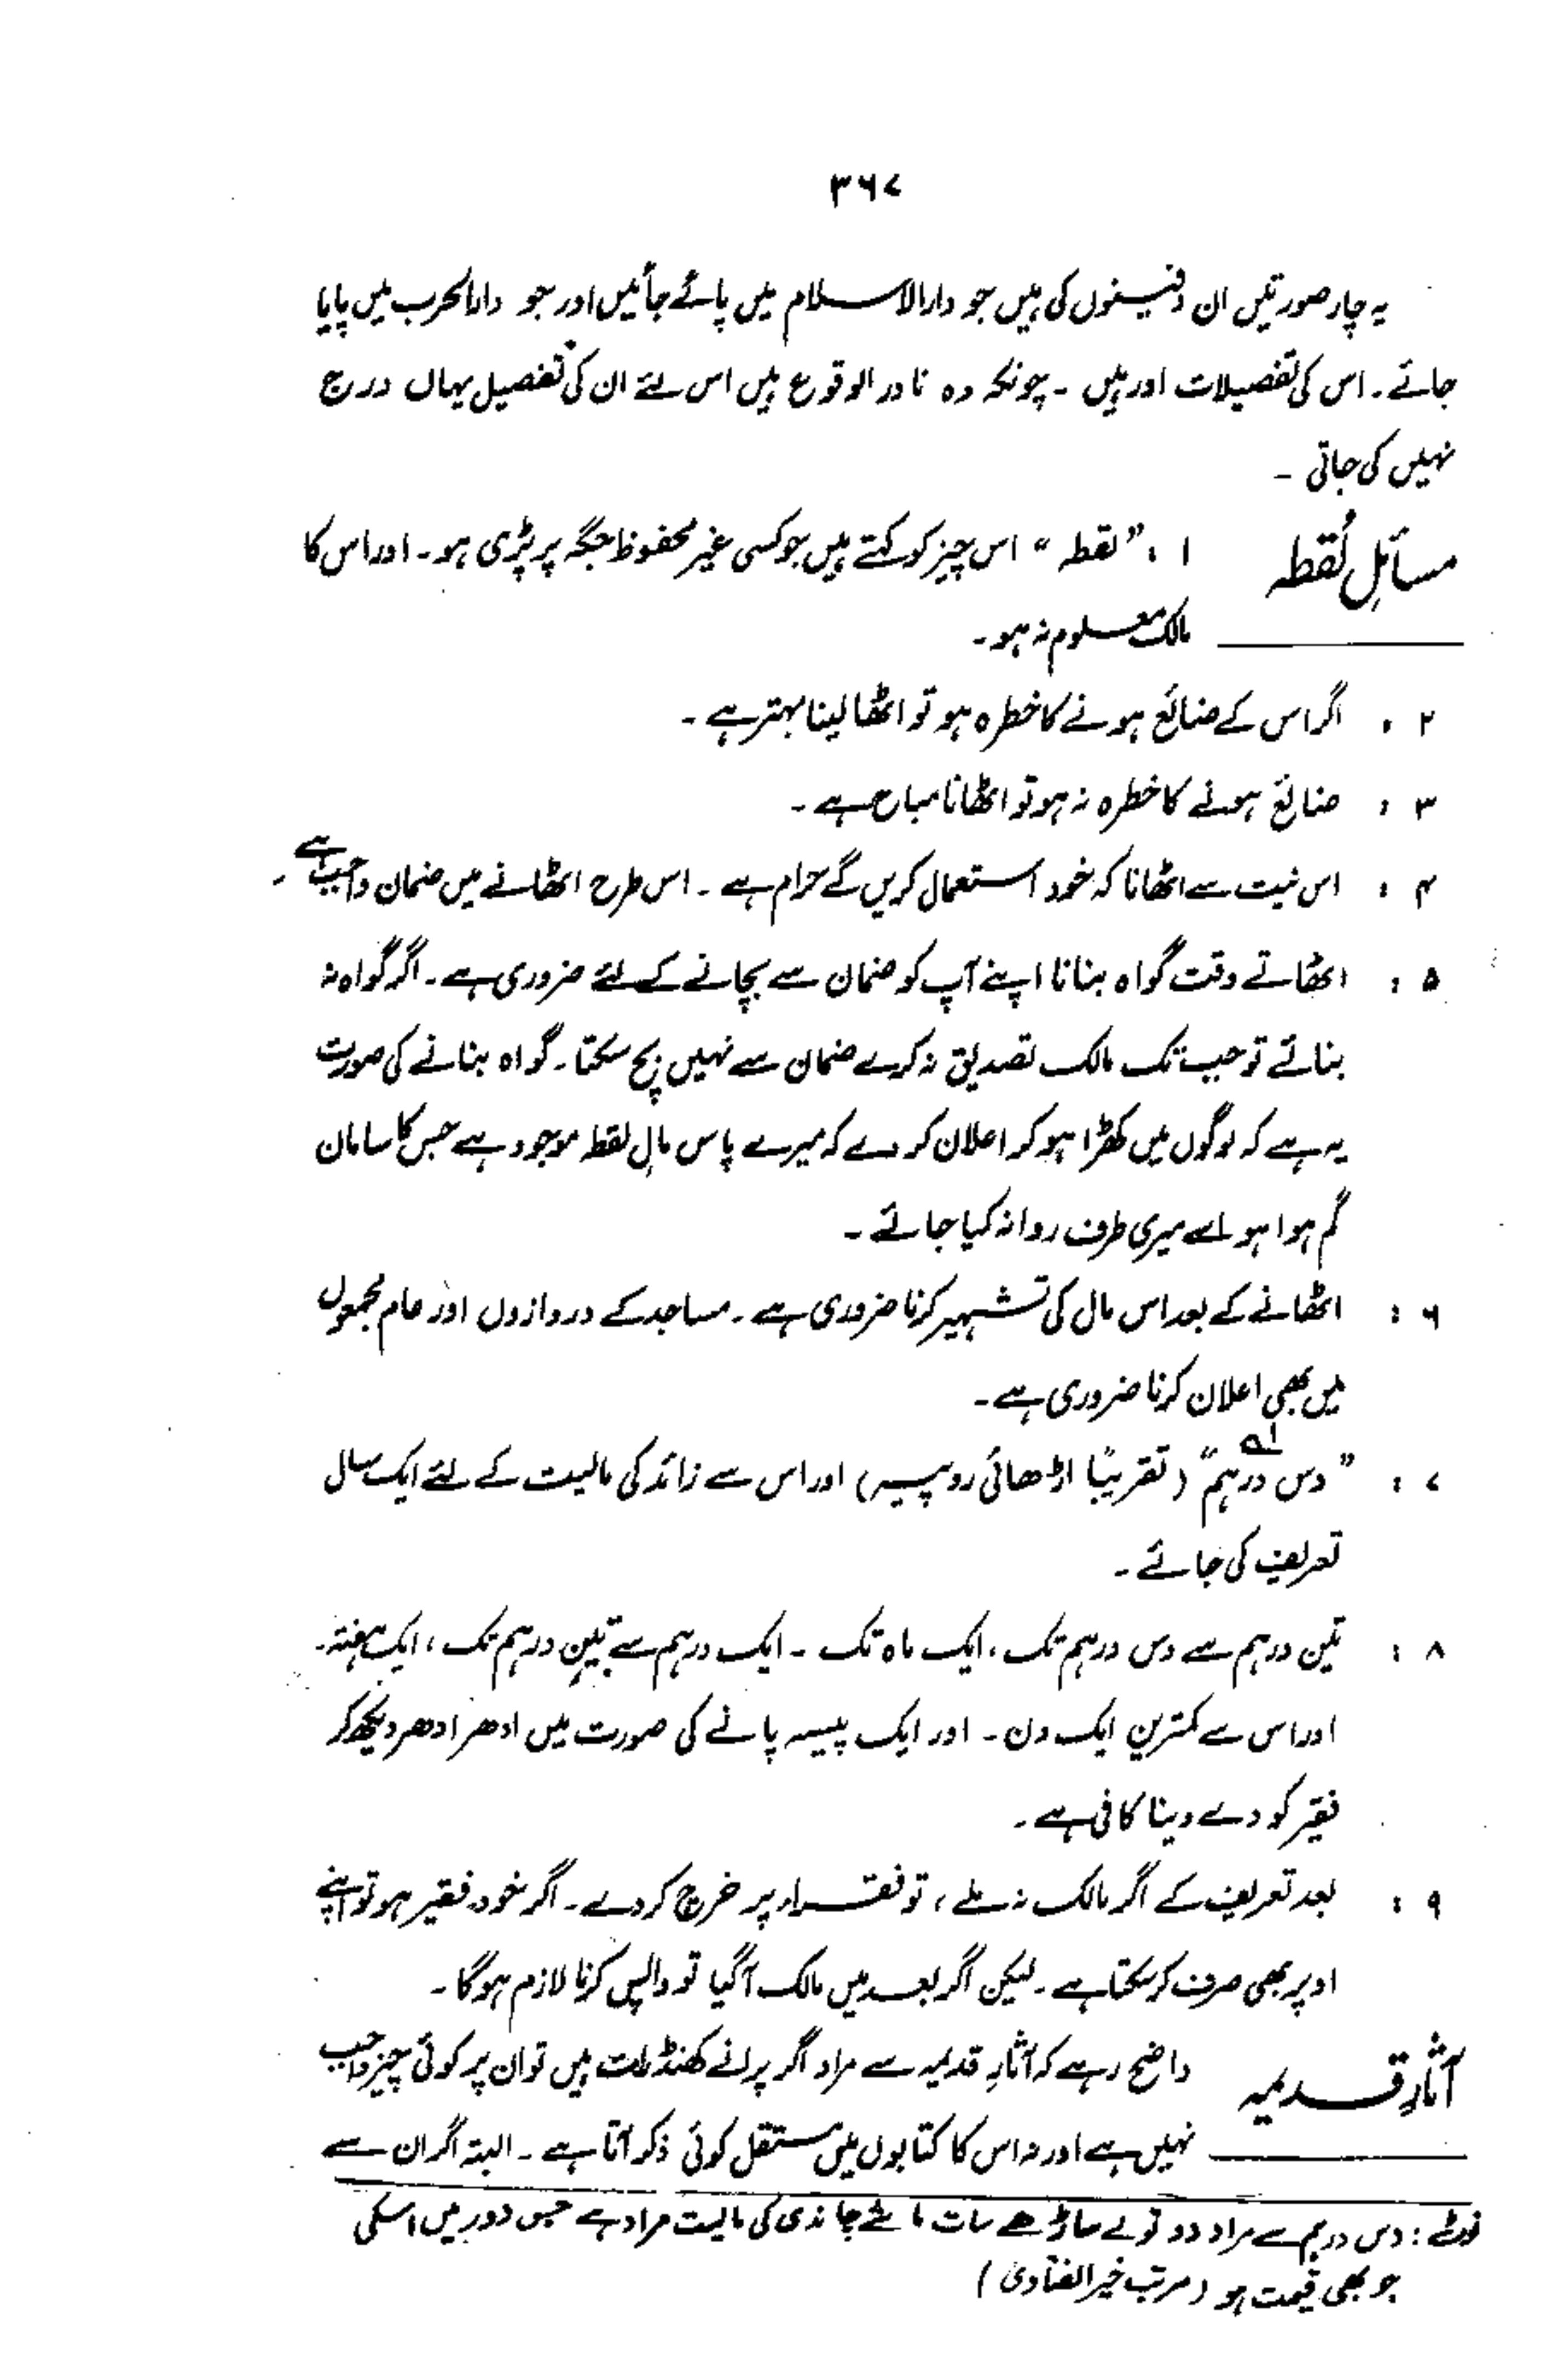 ۳۶۷
یہ چار صورتیں ان دفینوں کی ہیں جو دارالاسلام میں پائے جائیں اور جو دارالحرب میں پایا
جائے۔ اس کی تفصیلات اور ہیں ۔ چونکہ وہ نادر الوقوع ہیں اس لئے ان کی تفصیل یہاں درج
نہیں کی جاتی ۔
مسائلِ لُقطہ ۱ : ”لقطہ“ اس چیز کو کہتے ہیں جو کسی غیر محفوظ جگہ پر پڑی ہو۔ اور اس کا
مالک معلوم نہ ہو۔
۲ : اگر اس کے ضائع ہونے کا خطرہ ہو تو اٹھا لینا بہتر ہے ۔
۳ : ضائع ہونے کا خطرہ نہ ہو تو اٹھانا مباح ہے ۔
۴ : اس نیت سے اٹھانا کہ خود استعمال کریں گے حرام ہے ۔ اس طرح اٹھانے میں ضمان واجب ہے ۔
۵ : اٹھاتے وقت گواہ بنانا اپنے آپ کو ضمان سے بچانے کے لئے ضروری ہے ۔ اگر گواہ نہ
بنائے تو جب تک مالک تصدیق نہ کرے ضمان سے نہیں بچ سکتا۔ گواہ بنانے کی صورت
یہ ہے کہ لوگوں میں کھڑا ہو کر اعلان کر دے کہ میرے پاس مالِ لقطہ موجود ہے جس کا سامان
گم ہوا ہو اسے میری طرف روانہ کیا جائے ۔
۶ : اٹھانے کے بعد اس مال کی تشہیر کرنا ضروری ہے ۔ مساجد کے دروازوں اور عام مجمعوں
میں بھی اعلان کرنا ضروری ہے ۔
۷ : ”دس درہم“ لہ (تقریبًا اڑھائی روپیہ) اور اس سے زائد کی مالیت کے لئے ایک سال
تعریف کی جائے ۔
۸ : تین درہم سے دس درہم تک ، ایک ماہ تک ۔ ایک درہم سے تین درہم تک ، ایک ہفتہ۔
اور اس سے کمترین ایک دن ۔ اور ایک پیسہ پانے کی صورت میں ادھر ادھر دیکھ کر
فقیر کو دے دینا کافی ہے ۔
۹ : بعد تعریف کے اگر مالک نہ ملے ، تو فقراء پر خرچ کر دے ۔ اگر خود فقیر ہو تو اپنے
اوپر بھی صرف کر سکتا ہے ۔ لیکن اگر بعد میں مالک آگیا تو واپس کرنا لازم ہوگا ۔
آثارِ قدیمہ واضح رہے کہ آثارِ قدیمہ سے مراد اگر پرانے کھنڈرات ہیں تو ان پر کوئی چیز واجب
نہیں ہے اور نہ اس کا کتابوں میں مستقل کوئی ذکر آتا ہے ۔ البتہ اگر ان سے
نوٹ : دس درہم سے مراد دو تولے ساڑھے سات ماشے چاندی کی مالیت مراد ہے جس دور میں اسکی
جو بھی قیمت ہو (مرتب خیر الفتاویٰ)